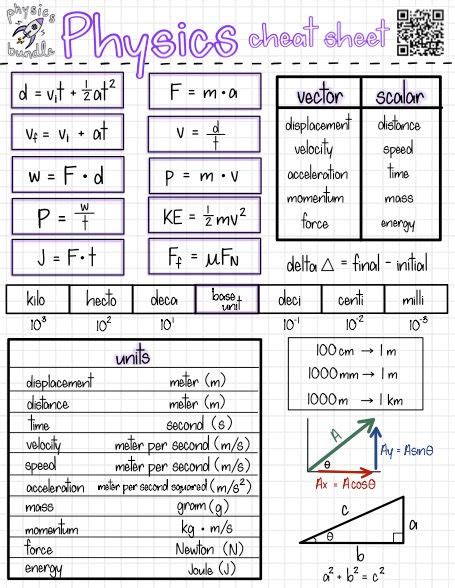 physics
bundle
Physics cheat sheet
d = v₁t + ½at²
F = m • a
v_f = v₁ + at
v = d/t
w = F • d
p = m • v
P = w/t
KE = ½mv²
J = F • t
F_f = μF_N
vector scalar
displacement distance
velocity speed
acceleration time
momentum mass
force energy
delta Δ = final - initial
kilo hecto deca base unit deci centi milli
10³ 10² 10¹ 10⁻¹ 10⁻² 10⁻³
units
displacement meter (m)
distance meter (m)
time second (s)
velocity meter per second (m/s)
speed meter per second (m/s)
acceleration meter per second squared (m/s²)
mass gram (g)
momentum kg • m/s
force Newton (N)
energy Joule (J)
100 cm → 1 m
1000 mm → 1 m
1000 m → 1 km
A
Ay = Asinθ
θ
Ax = Acosθ
c
a
θ
b
a² + b² = c²